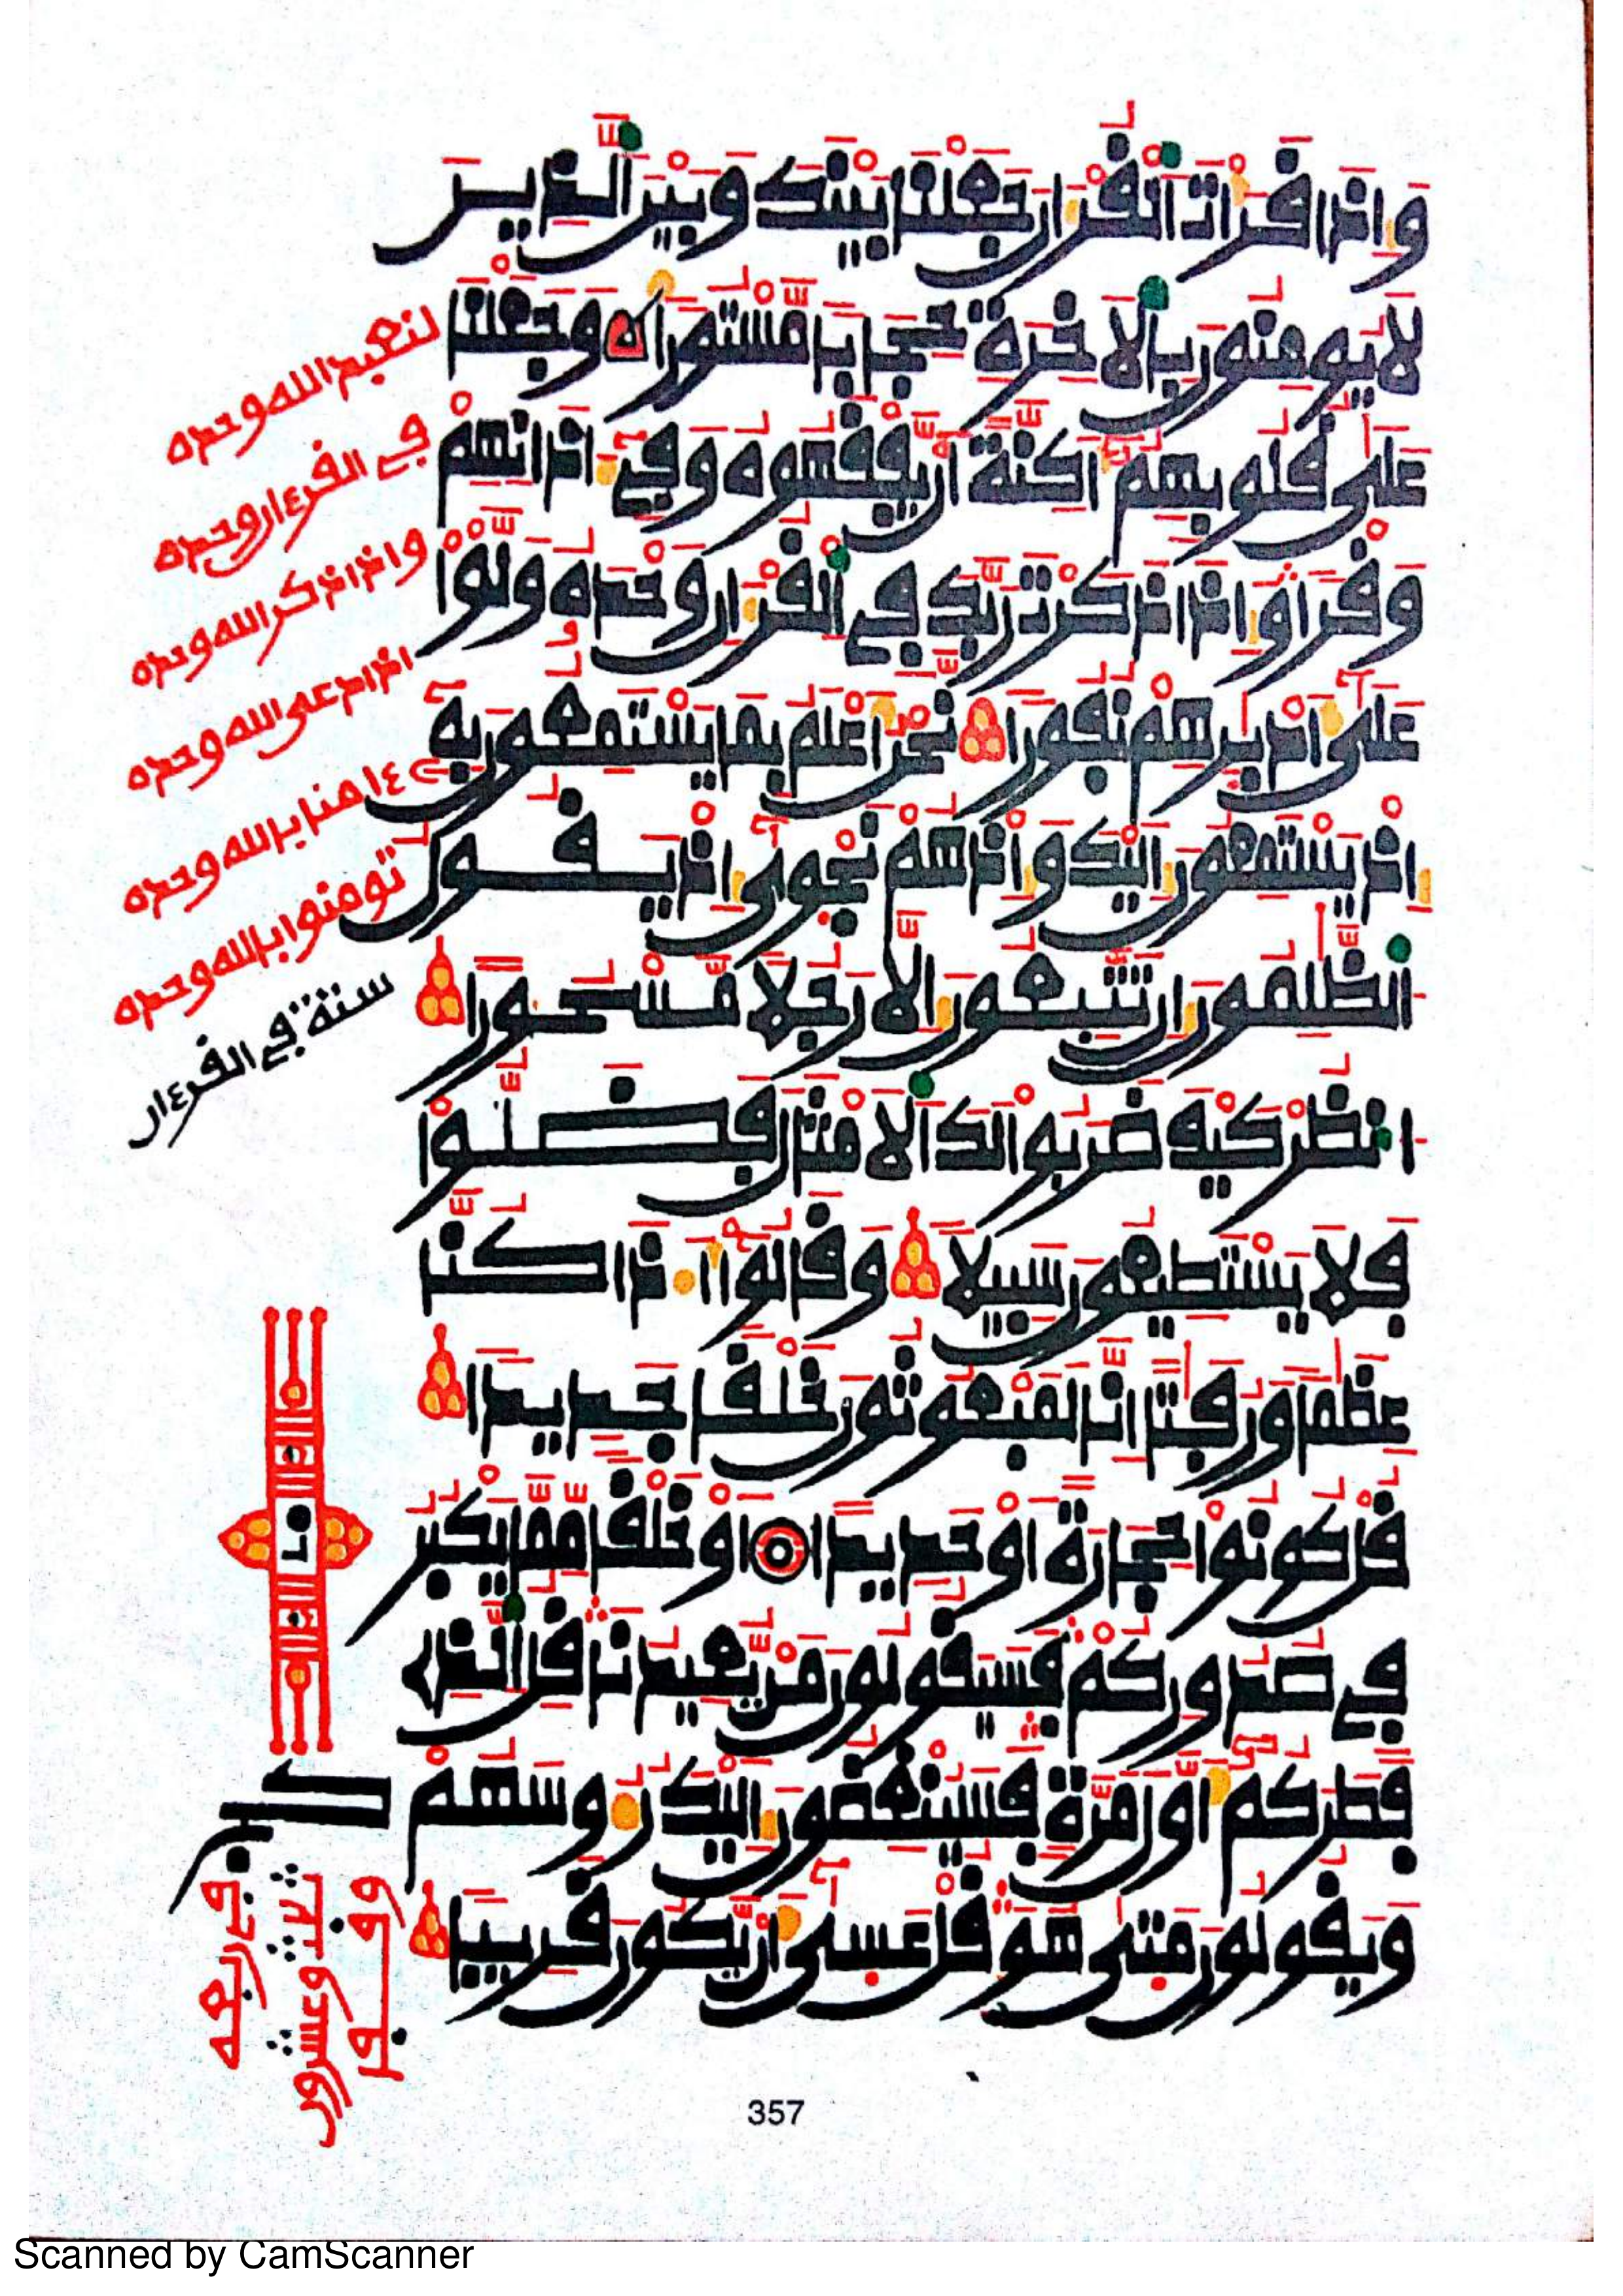 وَإِذَا قَرَأْتَ ٱلْقُرْءَانَ جَعَلْنَا بَيْنَكَ وَبَيْنَ ٱلذِينَ
لَا يُومِنُونَ بِٱلَاخِرَةِ حِجَابًا مَّسْتُورًا وَجَعَلْنَا
عَلَىٰ قُلُوبِهِمُۥٓ أَكِنَّةً أَن يَّفْقَهُوهُ وَفِےٓ ءَاذَانِهِمْ
وَقْرًا وَإِذَا ذَكَرْتَ رَبَّكَ فِے ٱلْقُرْءَانِ وَحْدَهُۥ وَلَّوْاْ
عَلَىٰٓ أَدْبٰرِهِمْ نُفُورًا نَّحْنُ أَعْلَمُ بِمَا يَسْتَمِعُونَ بِهِۦٓ
إِذْ يَسْتَمِعُونَ إِلَيْكَ وَإِذْ هُمْ نَجْوٰىٓ إِذْ يَقُولُ
ٱلظَّٰلِمُونَ إِن تَتَّبِعُونَ إِلَّا رَجُلًا مَّسْحُورًا
ٱنظُرْ كَيْفَ ضَرَبُواْ لَكَ ٱلَامْثَالَ فَضَلُّواْ
فَلَا يَسْتَطِيعُونَ سَبِيلًا وَقَالُوٓاْ أَ.ذَا كُنَّا
عِظَٰمًا وَرُفَٰتًا اِنَّا لَمَبْعُوثُونَ خَلْقًا جَدِيدًا
قُلْ كُونُواْ حِجَارَةً اَوْ حَدِيدًا اَوْ خَلْقًا مِّمَّا يَكْبُرُ
فِے صُدُورِكُمْ فَسَيَقُولُونَ مَنْ يُّعِيدُنَا قُلِ ٱلذِے
فَطَرَكُمُۥٓ أَوَّلَ مَرَّةٍ فَسَيُنْغِضُونَ إِلَيْكَ رُءُوسَهُمْ
وَيَقُولُونَ مَتَىٰ هُوَ قُلْ عَسَىٰٓ أَن يَّكُونَ قَرِيبًا
لنعبد الله وحده
في القرءان وحده
وإذا ذكر الله وحده
إذا دعى الله وحده
ءامنا بالله وحده
تومنوا بالله وحده
ستة في القرءان
357
Scanned by CamScanner